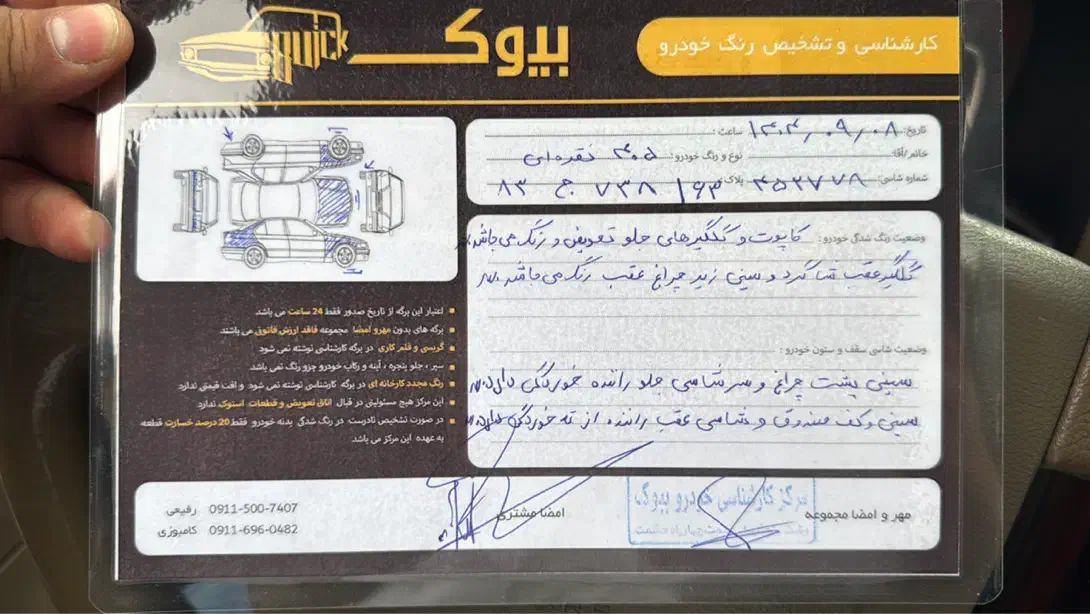 QUICK
بیوک
کارشناسی و تشخیص رنگ خودرو
تاریخ: ۱۴۰۴/۰۹/۰۸ ساعت:
خانم/آقا: نوع و رنگ خودرو: ۴۰۵ نقره‌ای
شماره شاسی: ۴۵۲۷۷۸ پلاک: ۶۳ | ۷۳۸ ج ۸۳
وضعیت رنگ شدگی خودرو: کاپوت و گلگیرهای جلو تعویض و رنگ می‌باشد
گلگیر عقب شاگرد و سینی زیر چراغ عقب رنگ می‌باشد
وضعیت شاسی سقف و ستون خودرو:
سینی پشت چراغ و سرشاسی جلو راننده خوردگی دارد
سینی و کف صندوق و شاسی عقب راننده از ته خوردگی دارد
اعتبار این برگه از تاریخ صدور فقط 24 ساعت می باشد
برگه های بدون مهر و امضا مجموعه فاقد ارزش قانونی می باشند
گریسی و قلم کاری در برگه کارشناسی نوشته نمی شود
سپر ، جلو پنجره ، آینه و رکاب خودرو جزو رنگ نمی باشد.
رنگ مجدد کارخانه ای در برگه کارشناسی نوشته نمی شود و افت قیمتی ندارد
این مرکز هیچ مسئولیتی در قبال اتاق تعویض و قطعات استوک ندارد
در صورت تشخیص نادرست در رنگ شدگی بدنه خودرو فقط 20 درصد خسارت قطعه
به عهده این مرکز می باشد.
مهر و امضا مجموعه
مرکز کارشناسی خودرو بیوک
امضا مشتری
0911-500-7407 رفیعی
0911-696-0482 کامبوزی